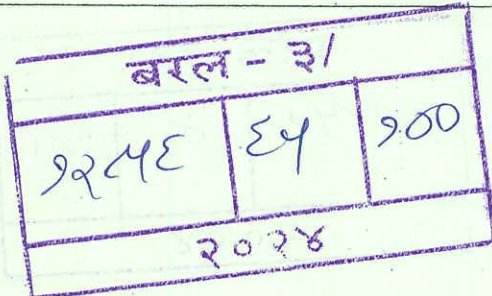 बरल - ३/
१२५६ ६५ १००
२०२४